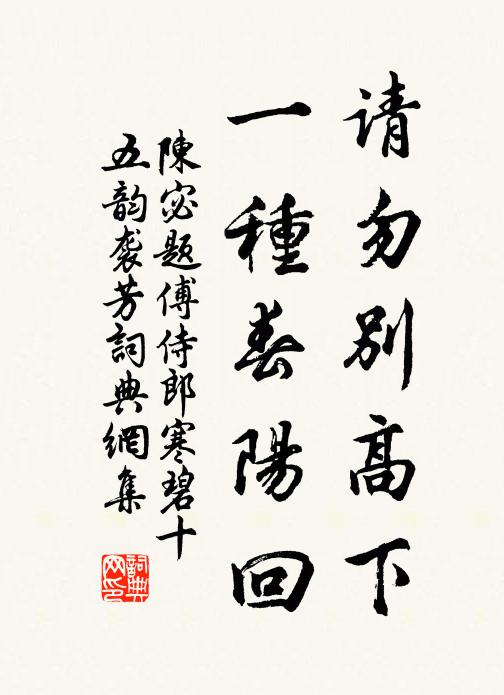 请勿别高下
一種春陽回
陳宓题傅侍郎寒碧十
五韵袭芳詞典網集
詞典
网印